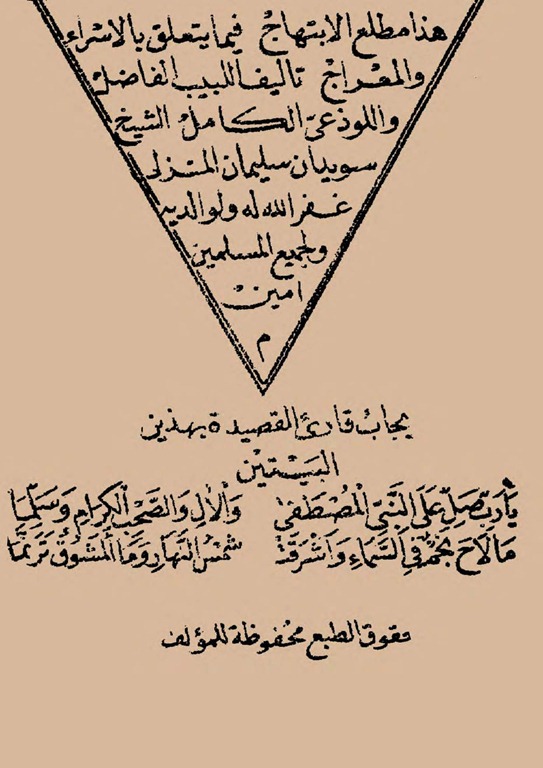 هذا مطلع الابتهاج فيما يتعلق بالاسراء
والمعراج تاليف اللبيب الفاضل
واللوذعى الكامل الشيخ
سويدان سليمان المنزلى
غفر الله له ولوالديه
ولجميع المسلمين
امين
م
يجاب قارئ القصيدة بهذين
البيتين
يَا رَبِّ صَلِّ عَلَى النَّبِىِّ الْمُصْطَفَى وَالْاٰلِ وَالصَّحْبِ الْكِرَامِ وَسَلِّمَا
مَا لَاحَ نَجْمٌ فِى السَّمَاءِ وَاَشْرَقَتْ شَمْسُ النَّهَارِ وَمَا الْمَشُوقُ تَرَنَّمَا
حقوق الطبع محفوظة للمؤلف